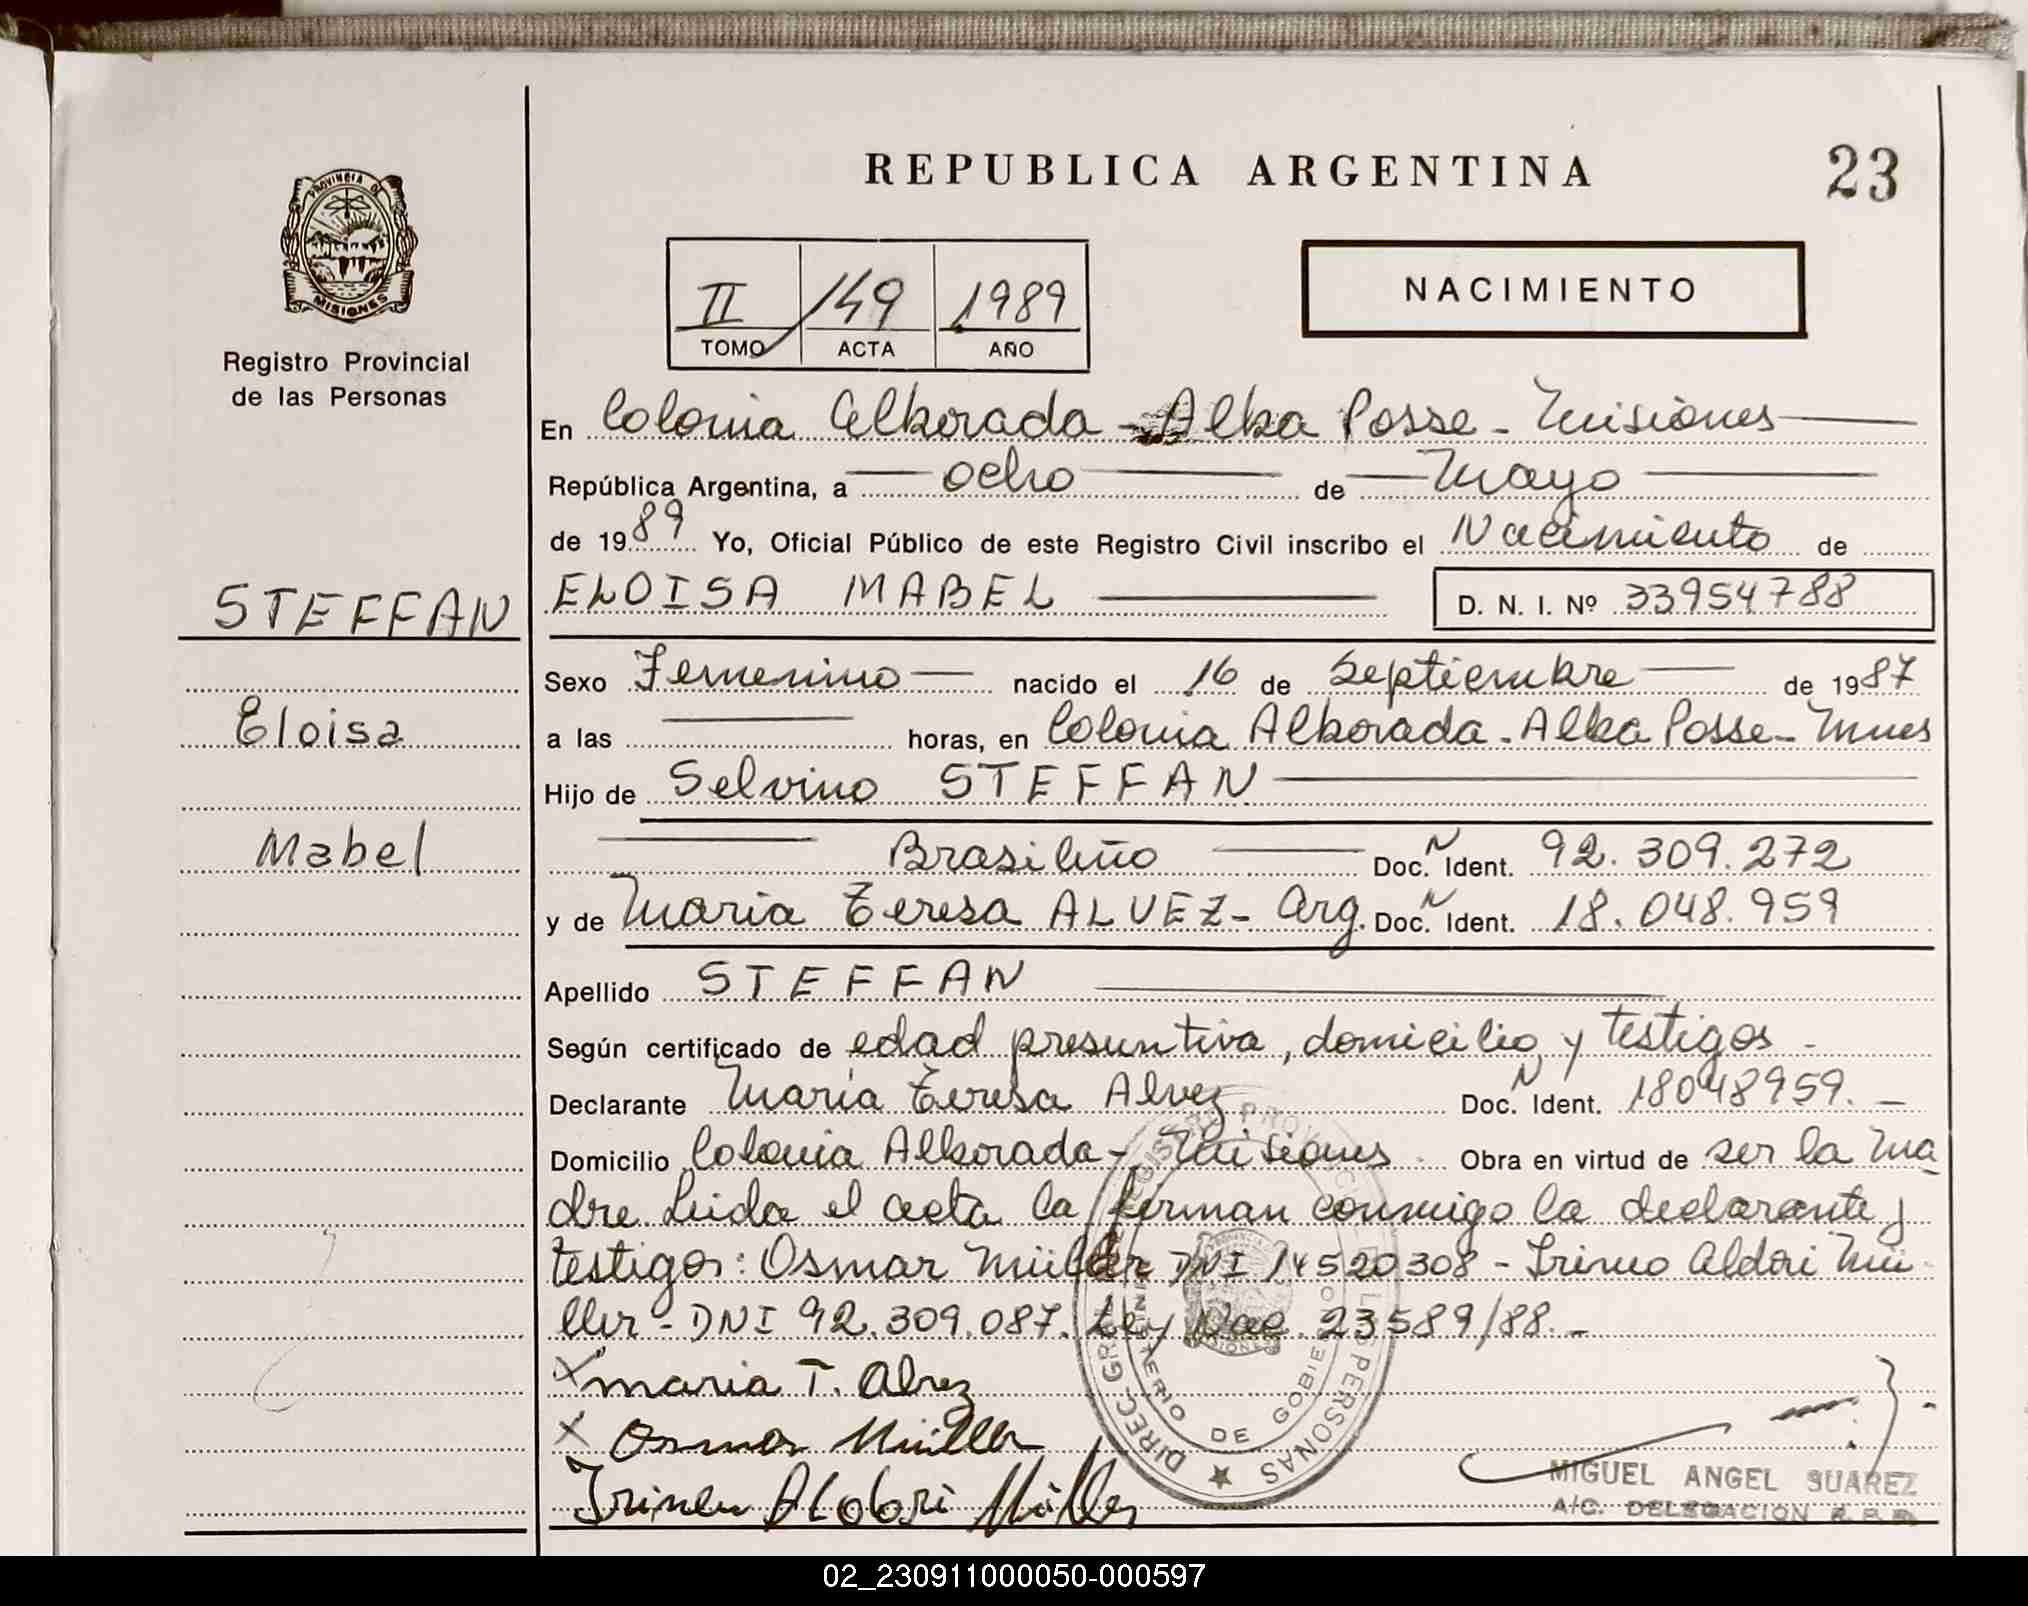 REPUBLICA ARGENTINA
23
PROVINCIA DE
MISIONES
Registro Provincial
de las Personas
II 149 1989
TOMO ACTA AÑO
NACIMIENTO
En Colonia Alborada - Alba Posse - Misiones
República Argentina, a ocho de Mayo
de 1989 Yo, Oficial Público de este Registro Civil inscribo el Nacimiento de
STEFFAN
ELOISA MABEL D. N. I. Nº 33954788
Sexo Femenino nacido el 16 de Septiembre de 1987
Eloisa
a las horas, en Colonia Alborada - Alba Posse - Mnes
Hijo de Selvino STEFFAN
Mabel
Brasileño Doc. N Ident. 92.309.272
y de Maria Teresa ALVEZ - Arg. Doc. N Ident. 18.048.959
Apellido STEFFAN
Según certificado de edad presuntiva, domicilio y testigos -
Declarante Maria Teresa Alvez Doc. N Ident. 18048959. -
Domicilio Colonia Alborada - Misiones Obra en virtud de ser la ma
dre Leida el acta la firman conmigo la declarante y
testigos: Osmar Müller DNI 14520308 - Irineo Aldori Mü
ller - DNI 92.309.087. Ley Nac. 23589/88. -
x maria T. Alvez
x Osmar Müller
Irineu Aldori Müller
DIREC. GRAL. REGISTRO PROVINCIAL DE LAS PERSONAS
MINISTERIO DE GOBIERNO
MIGUEL ANGEL SUAREZ
A/C. DELEGACION R. P. P.
02_230911000050-000597